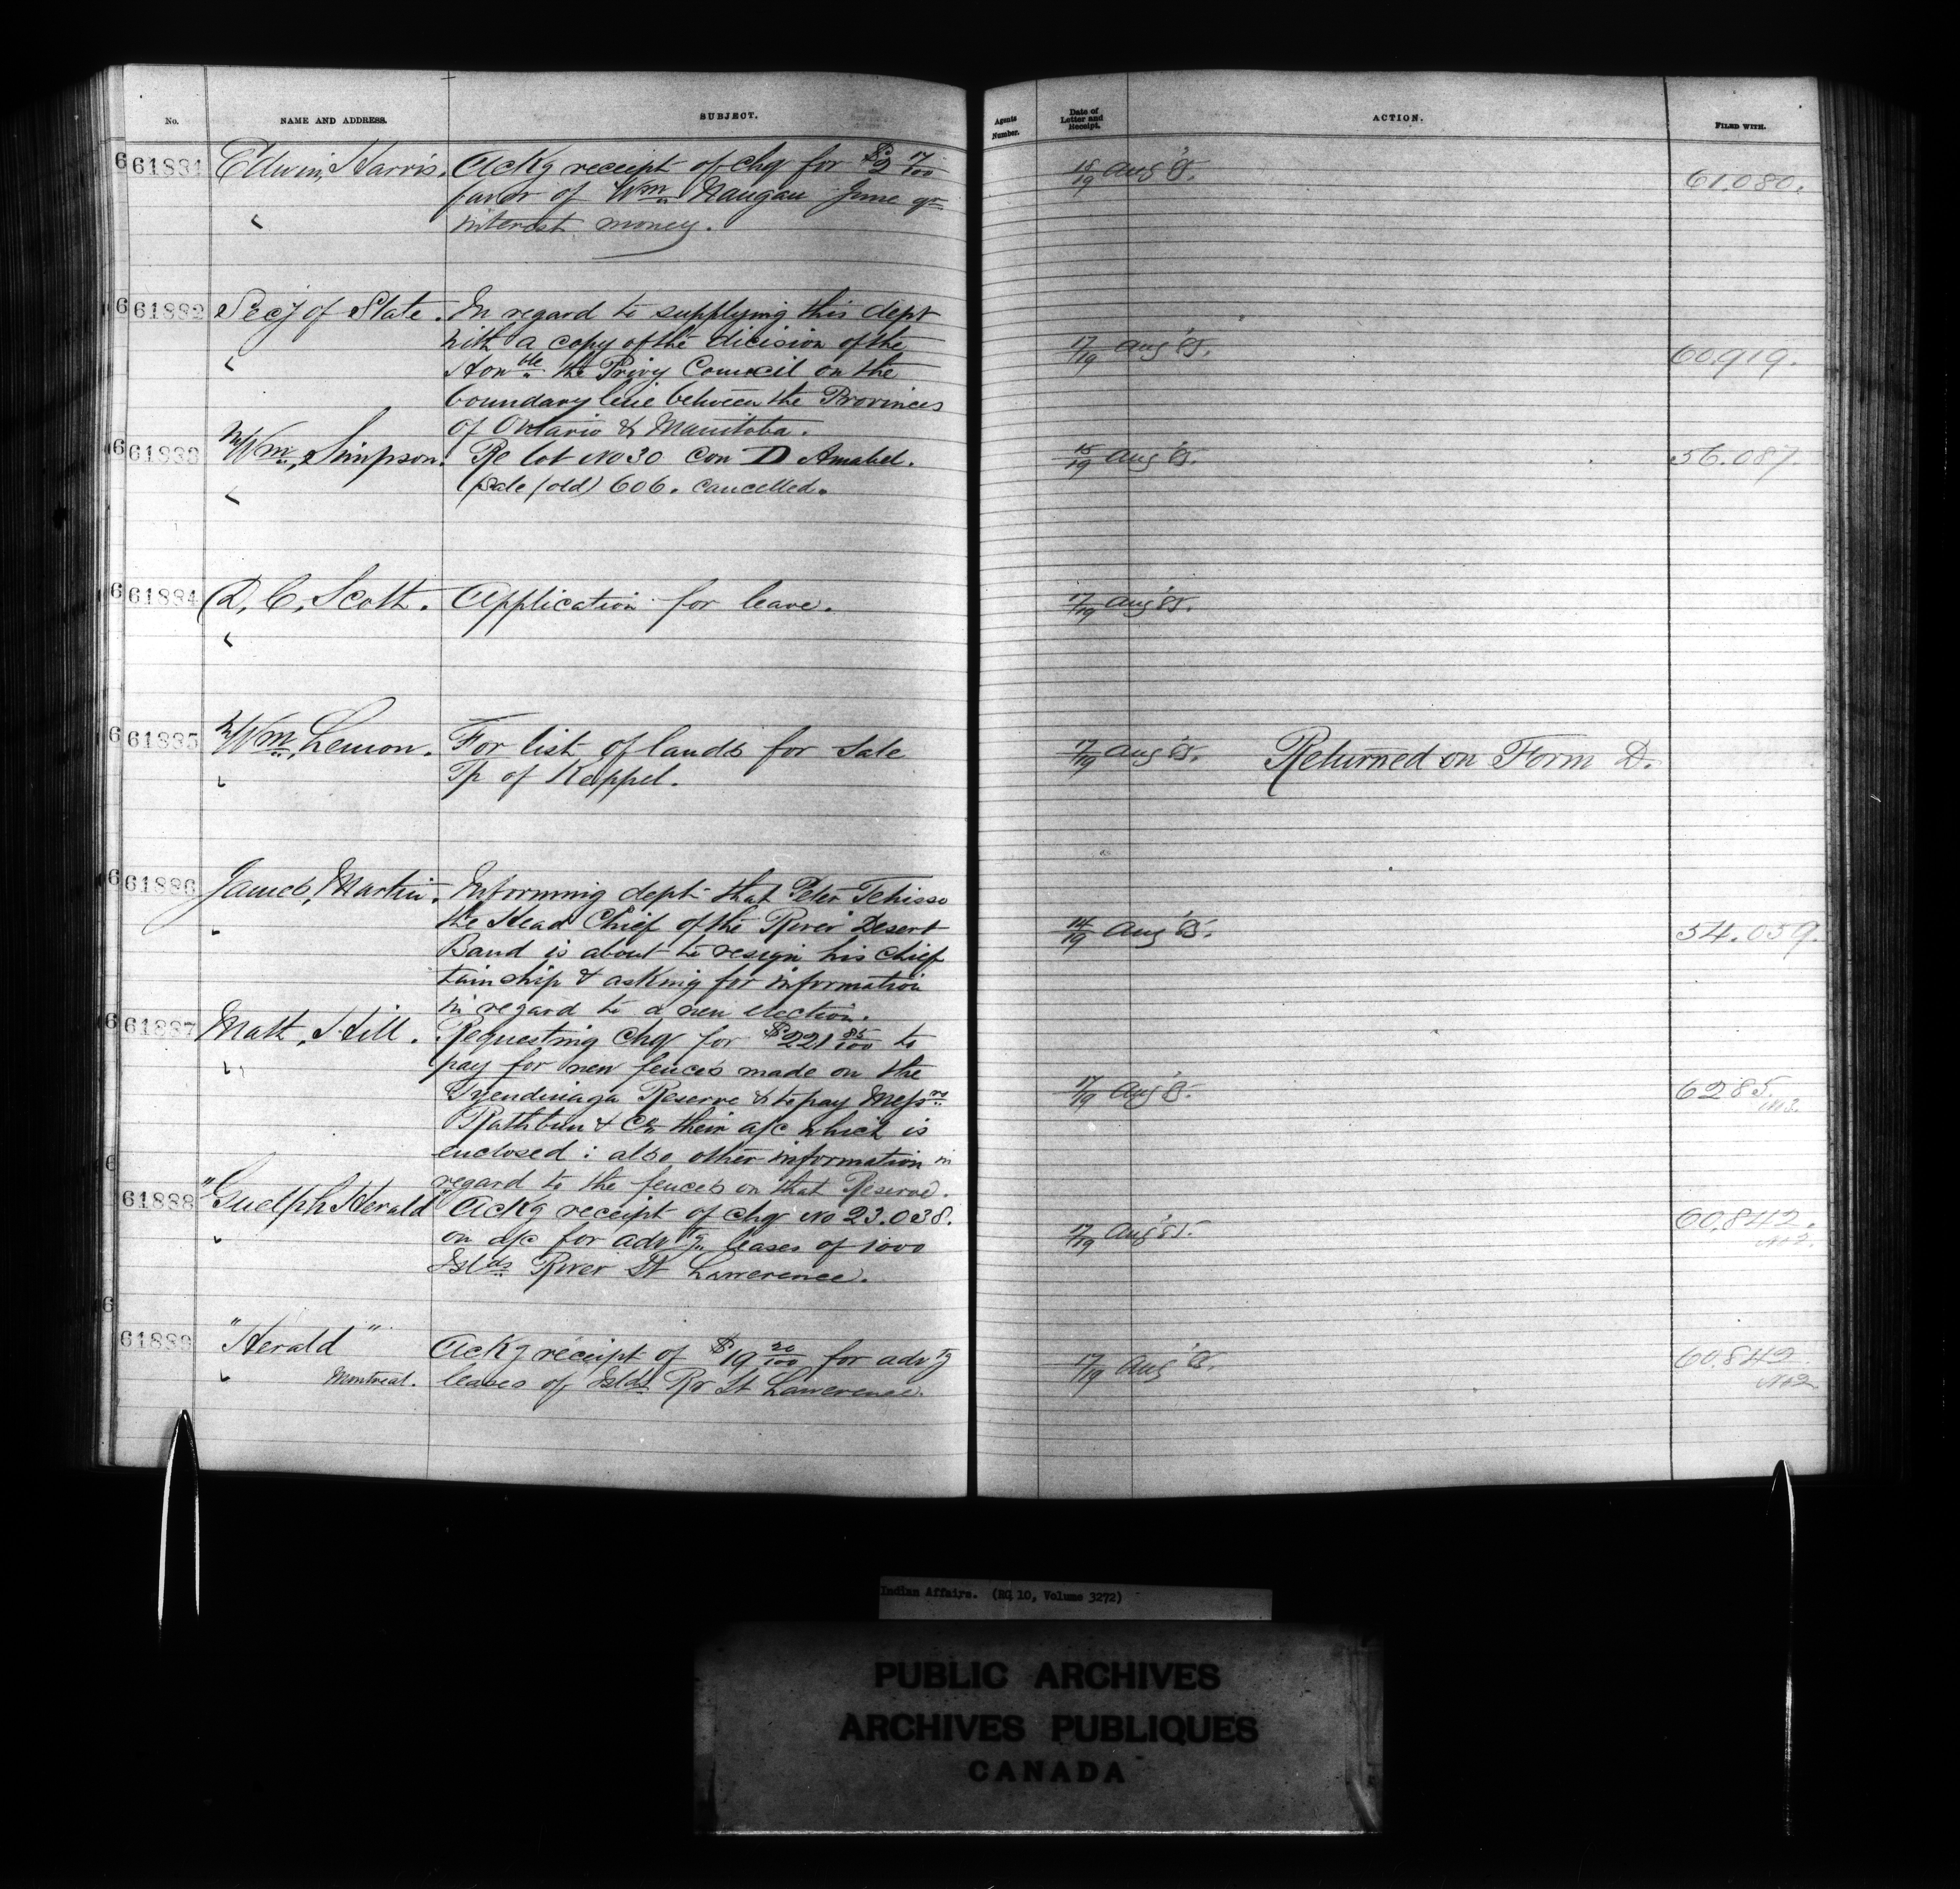 No. NAME AND ADDRESS. SUBJECT. Agents Number. Date of Letter and Receipt. ACTION. FILED WITH.
6 61881 Edwin, Harris. Ackg receipt of chq for $2 17/100 18/19 Aug '85. 61.080.
favor of Wm Naugau June qr
interest money.
6 61882 Secy of State. In regard to supplying this dept
with a copy of the dicision of the 17/19 Aug '85. 60,919.
Honble the Privy Council on the
boundary line between the Provinces
of Ontario & Manitoba.
6 61883 Wm, Simpson. Re lot No 30 Con D Amabel. 15/19 Aug '85. 56.087.
(Sale (old) 606. cancelled.
6 61884 D, C, Scott. Application for leave. 17/19 Aug '85.
6 61885 Wm, Lemon. For list of lands for sale 17/19 Aug '85. Returned on Form D.
Tp of Keppel.
6 61886 James, Martin. Informing dept that Peter Tenisso
the Head Chief of the River Desert 14/19 Aug '85. 54.059.
Band is about to resign his chief
tainship & asking for information
in regard to a new election.
6 61887 Matt, Hill. Requesting chq for $221 85/100 to
pay for new fences made on the
Tyendinaga Reserve & to pay Messrs 17/19 Aug '85. 6285.
Rathbun & Co their a/c which is No 3.
enclosed : also other information in
regard to the fences on that Reserve.
6 61888 "Guelph Herald" Ackg receipt of chq No 23.038. 60,842.
on a/c for advtg leases of 1000 17/19 Aug '85. No 2.
Islds River St Lawerence.
6 61889 "Herald" Ackg receipt of $19 20/100 for advtg 17/19 Aug '85. 60,842.
Montreal. leases of Islds Rr St Lawerence. No 2.
Indian Affairs. (RG 10, Volume 3272)
PUBLIC ARCHIVES
ARCHIVES PUBLIQUES
CANADA